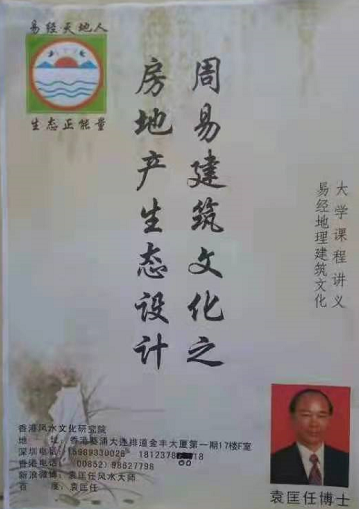 易经天地人
生态正能量
周易建筑文化之
房地产生态设计
大学课程讲义
易经地理建筑文化
香港风水文化研究院
地 址：香港葵涌大连排道金丰大厦第一期17楼F室
深圳电话：15989339028
香港电话：(00852)98627798
新浪微博：袁匡任风水大师
袁匡任
袁匡任博士